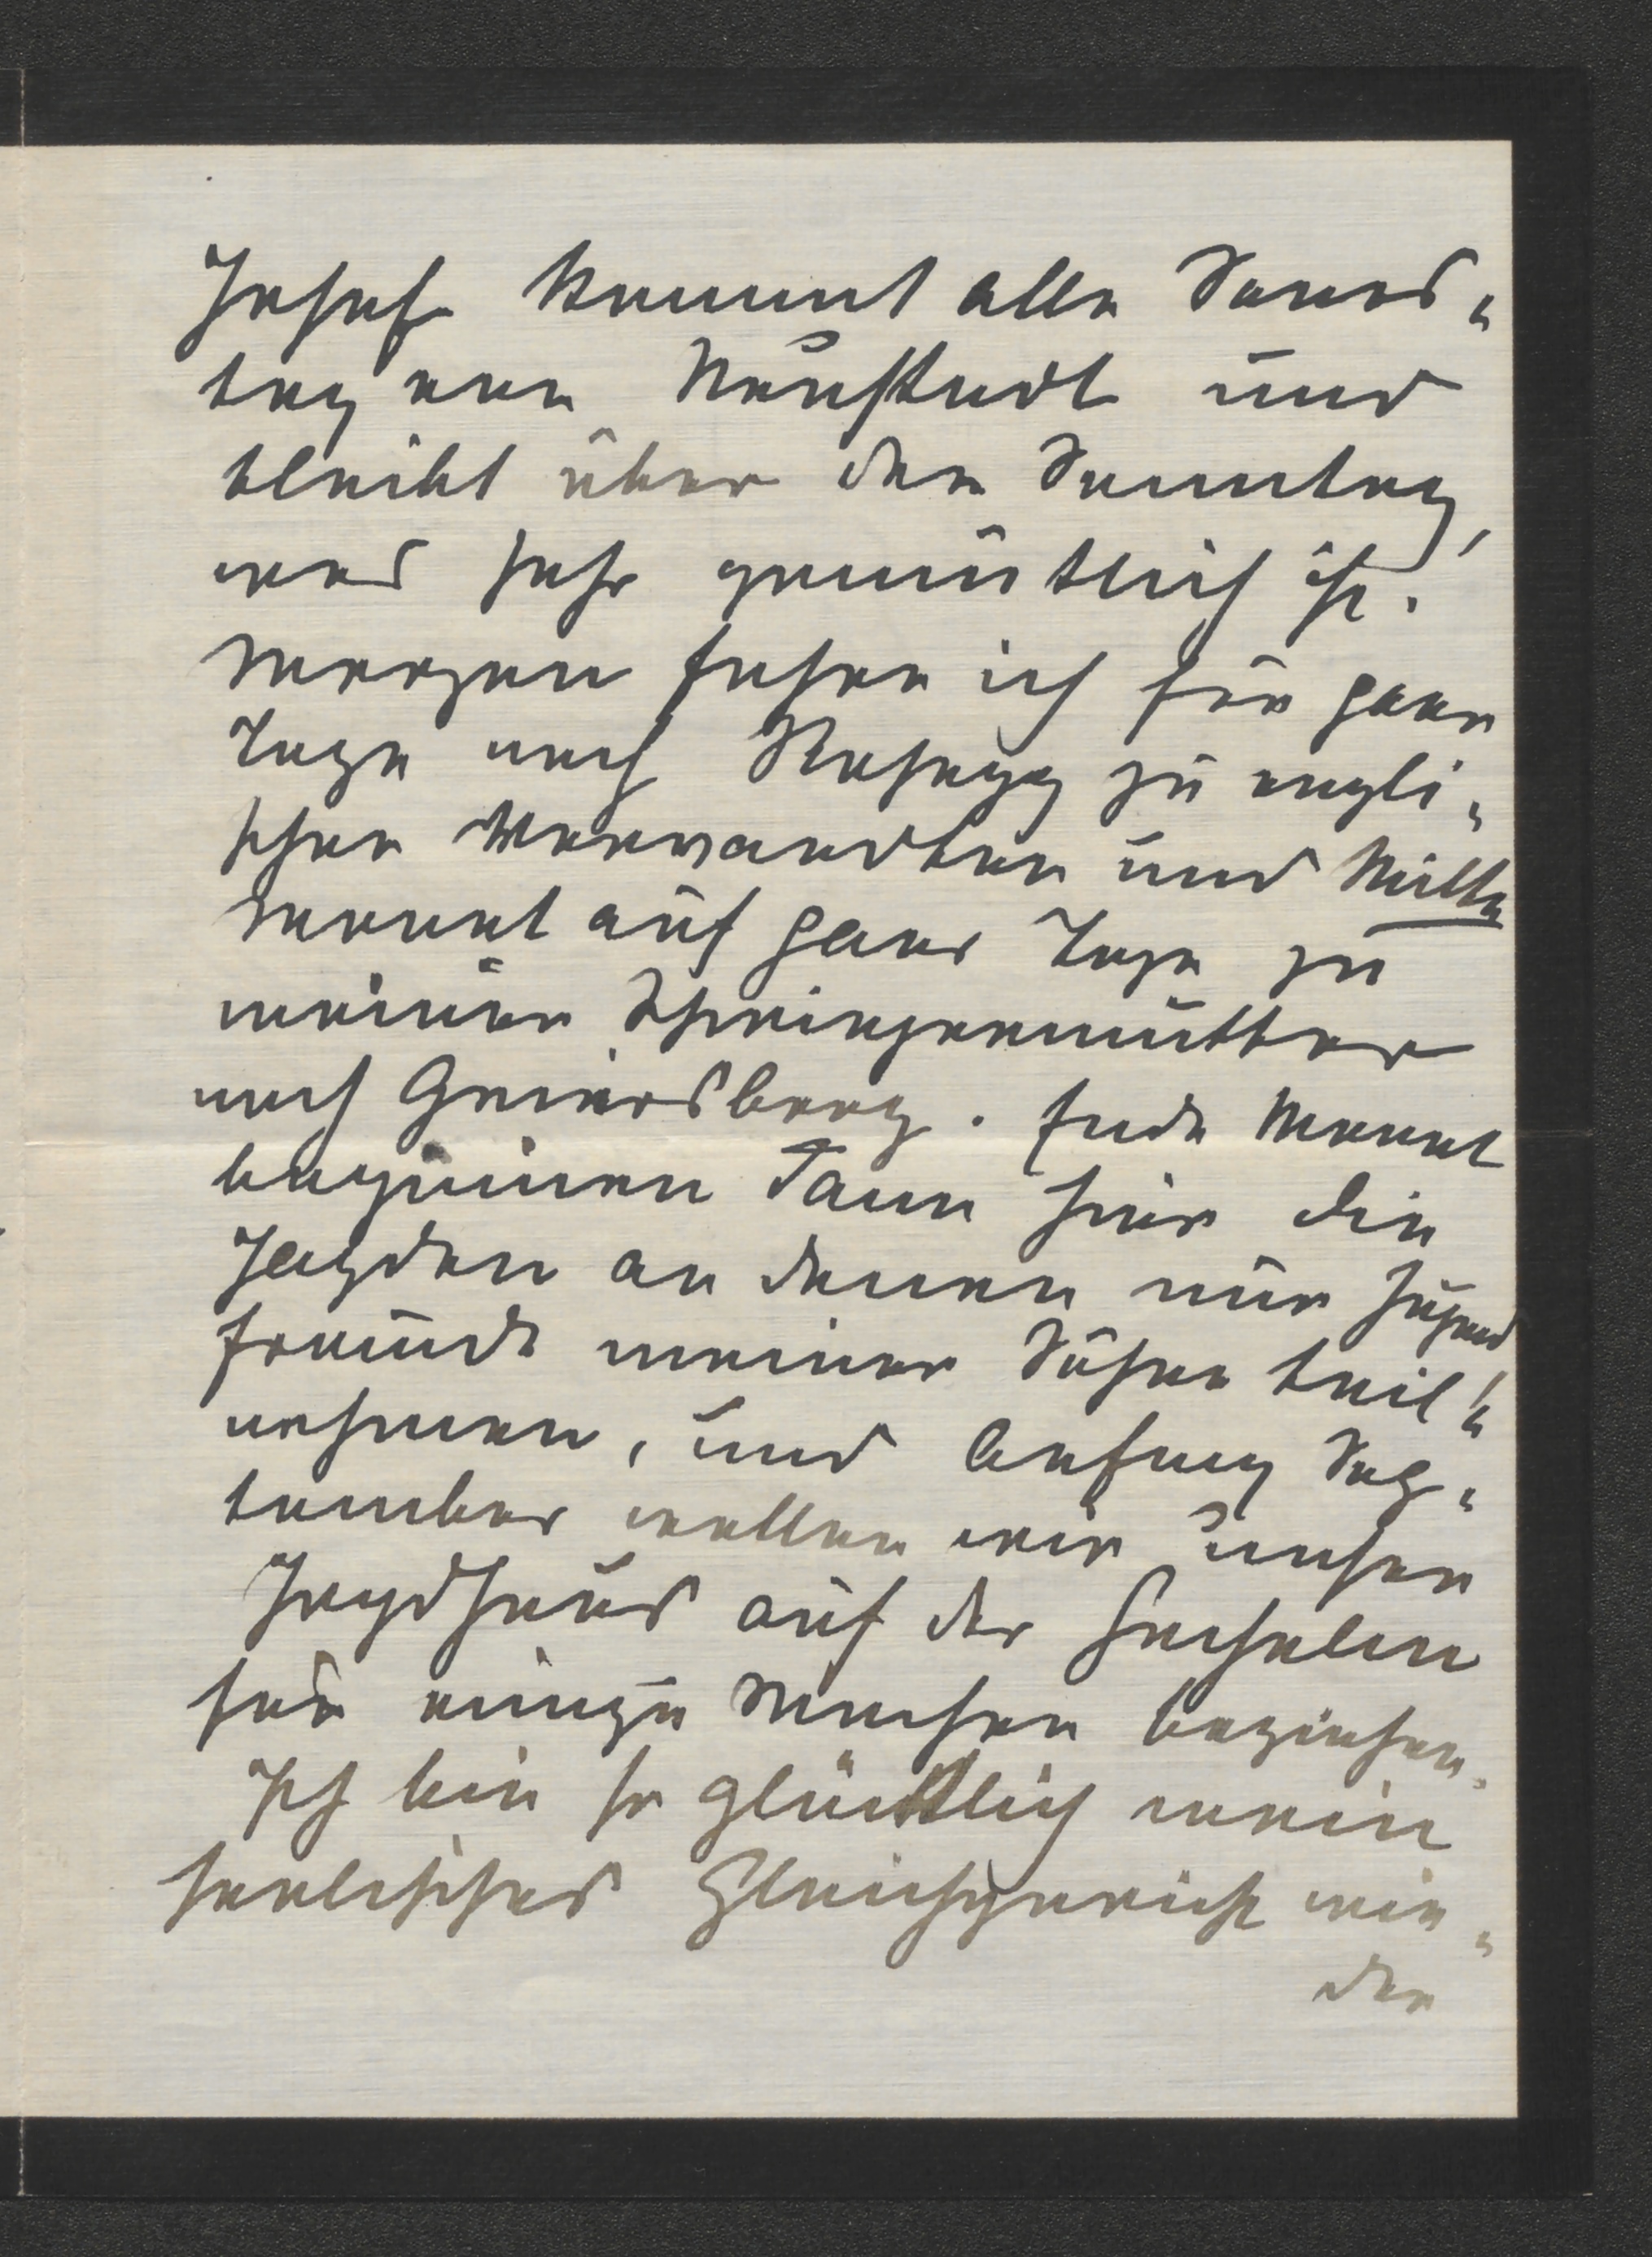 Josef kommt alle Sams„
tag von Neustadt und
bleibt über den Sonntag,
was sehr gemütlich ist.
Morgen fahre ich für paar
Tage nach Rosegg zu engli„
schen Verwandten und Mitte
Monat auf paar Tage zu
meiner Schwiegermutter
nach Geiersberg. Ende Monat
beginnen dann hier die
Jagden an denen nur Jugend
freunde meiner Söhne teil„
nehmen, und Anfang Sep„
tember wollen wir unser
Jagdhaus auf der
für einige Wochen beziehen.
Ich bin so glücklich mein
seelisches Gleichgewicht wie„
der